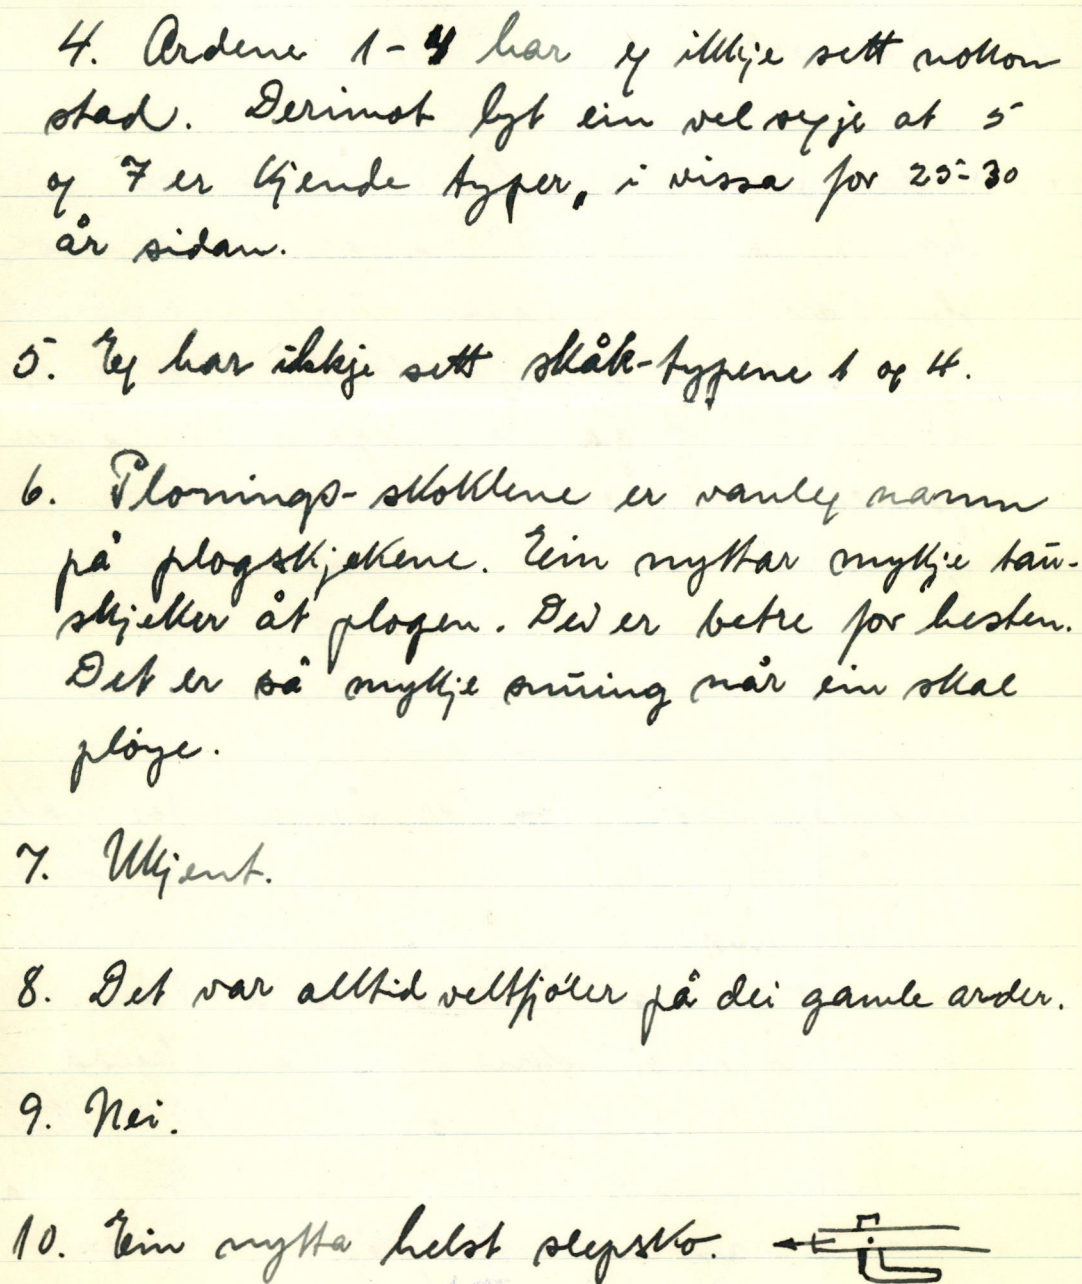 4. Ardene 1-4 har eg ikkje sett nokon
stad. Derimot lyt ein vel segje at 5
og 7 er kjende typer, i vissa for 25-30
år sidan.
5. Eg har ikkje sett skåk-typene 1 og 4.
6. Plornings-skoklene er vanleg namn
på plogskjekene. Ein nyttar mykje tau-
skjeker åt plogen. Dei er betre for hesten.
Det er så mykje snuing når ein skal
pløye.
7. Ukjent.
8. Det var alltid veltfjöler på dei gamle arder.
9. Nei.
10. Ein nytta helst slepsko.